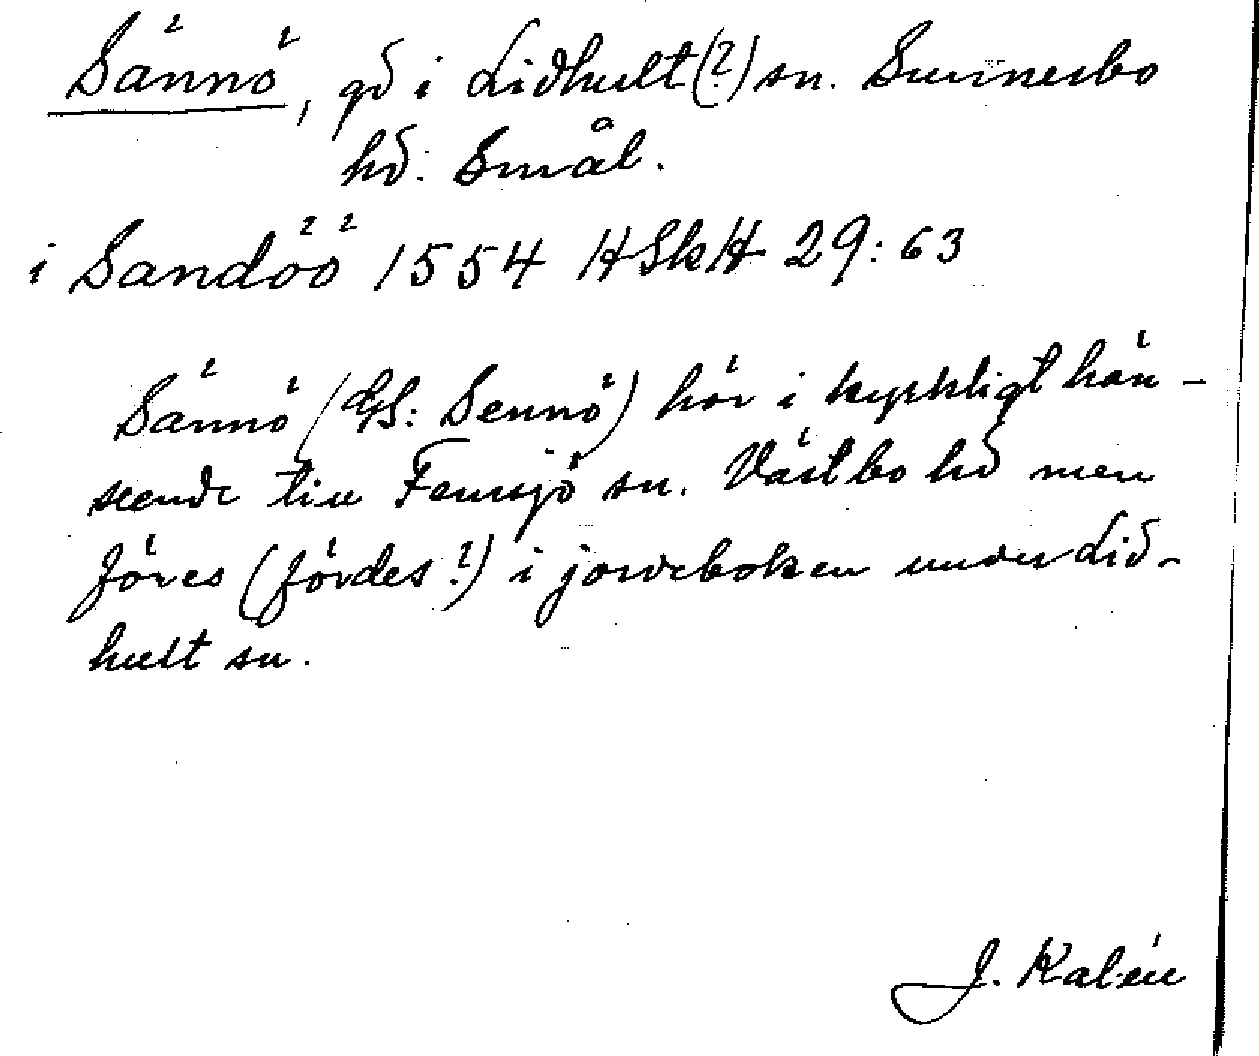 Sännö, gd i Lidhult(?) sn. Sunnerbo
hd. Smål.
i Sandöö 1554 HSkH 29:63
Sännö (GS: Sennö) hör i kyrkligt hän-
seende till Femsjö sn. Västbo hd men
föres (fördes?) i jordeboken under Lid-
hult sn.
J. Kalén